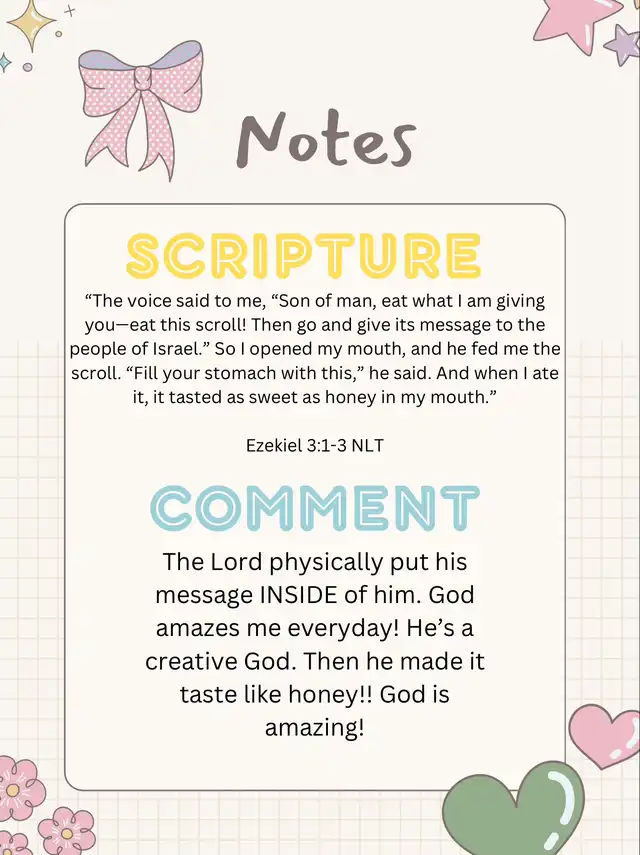 Notes
SCRIPTURE
“The voice said to me, “Son of man, eat what I am giving
you—eat this scroll! Then go and give its message to the
people of Israel.” So I opened my mouth, and he fed me the
scroll. “Fill your stomach with this,” he said. And when I ate
it, it tasted as sweet as honey in my mouth.”
Ezekiel 3:1-3 NLT
COMMENT
The Lord physically put his
message INSIDE of him. God
amazes me everyday! He’s a
creative God. Then he made it
taste like honey!! God is
amazing!